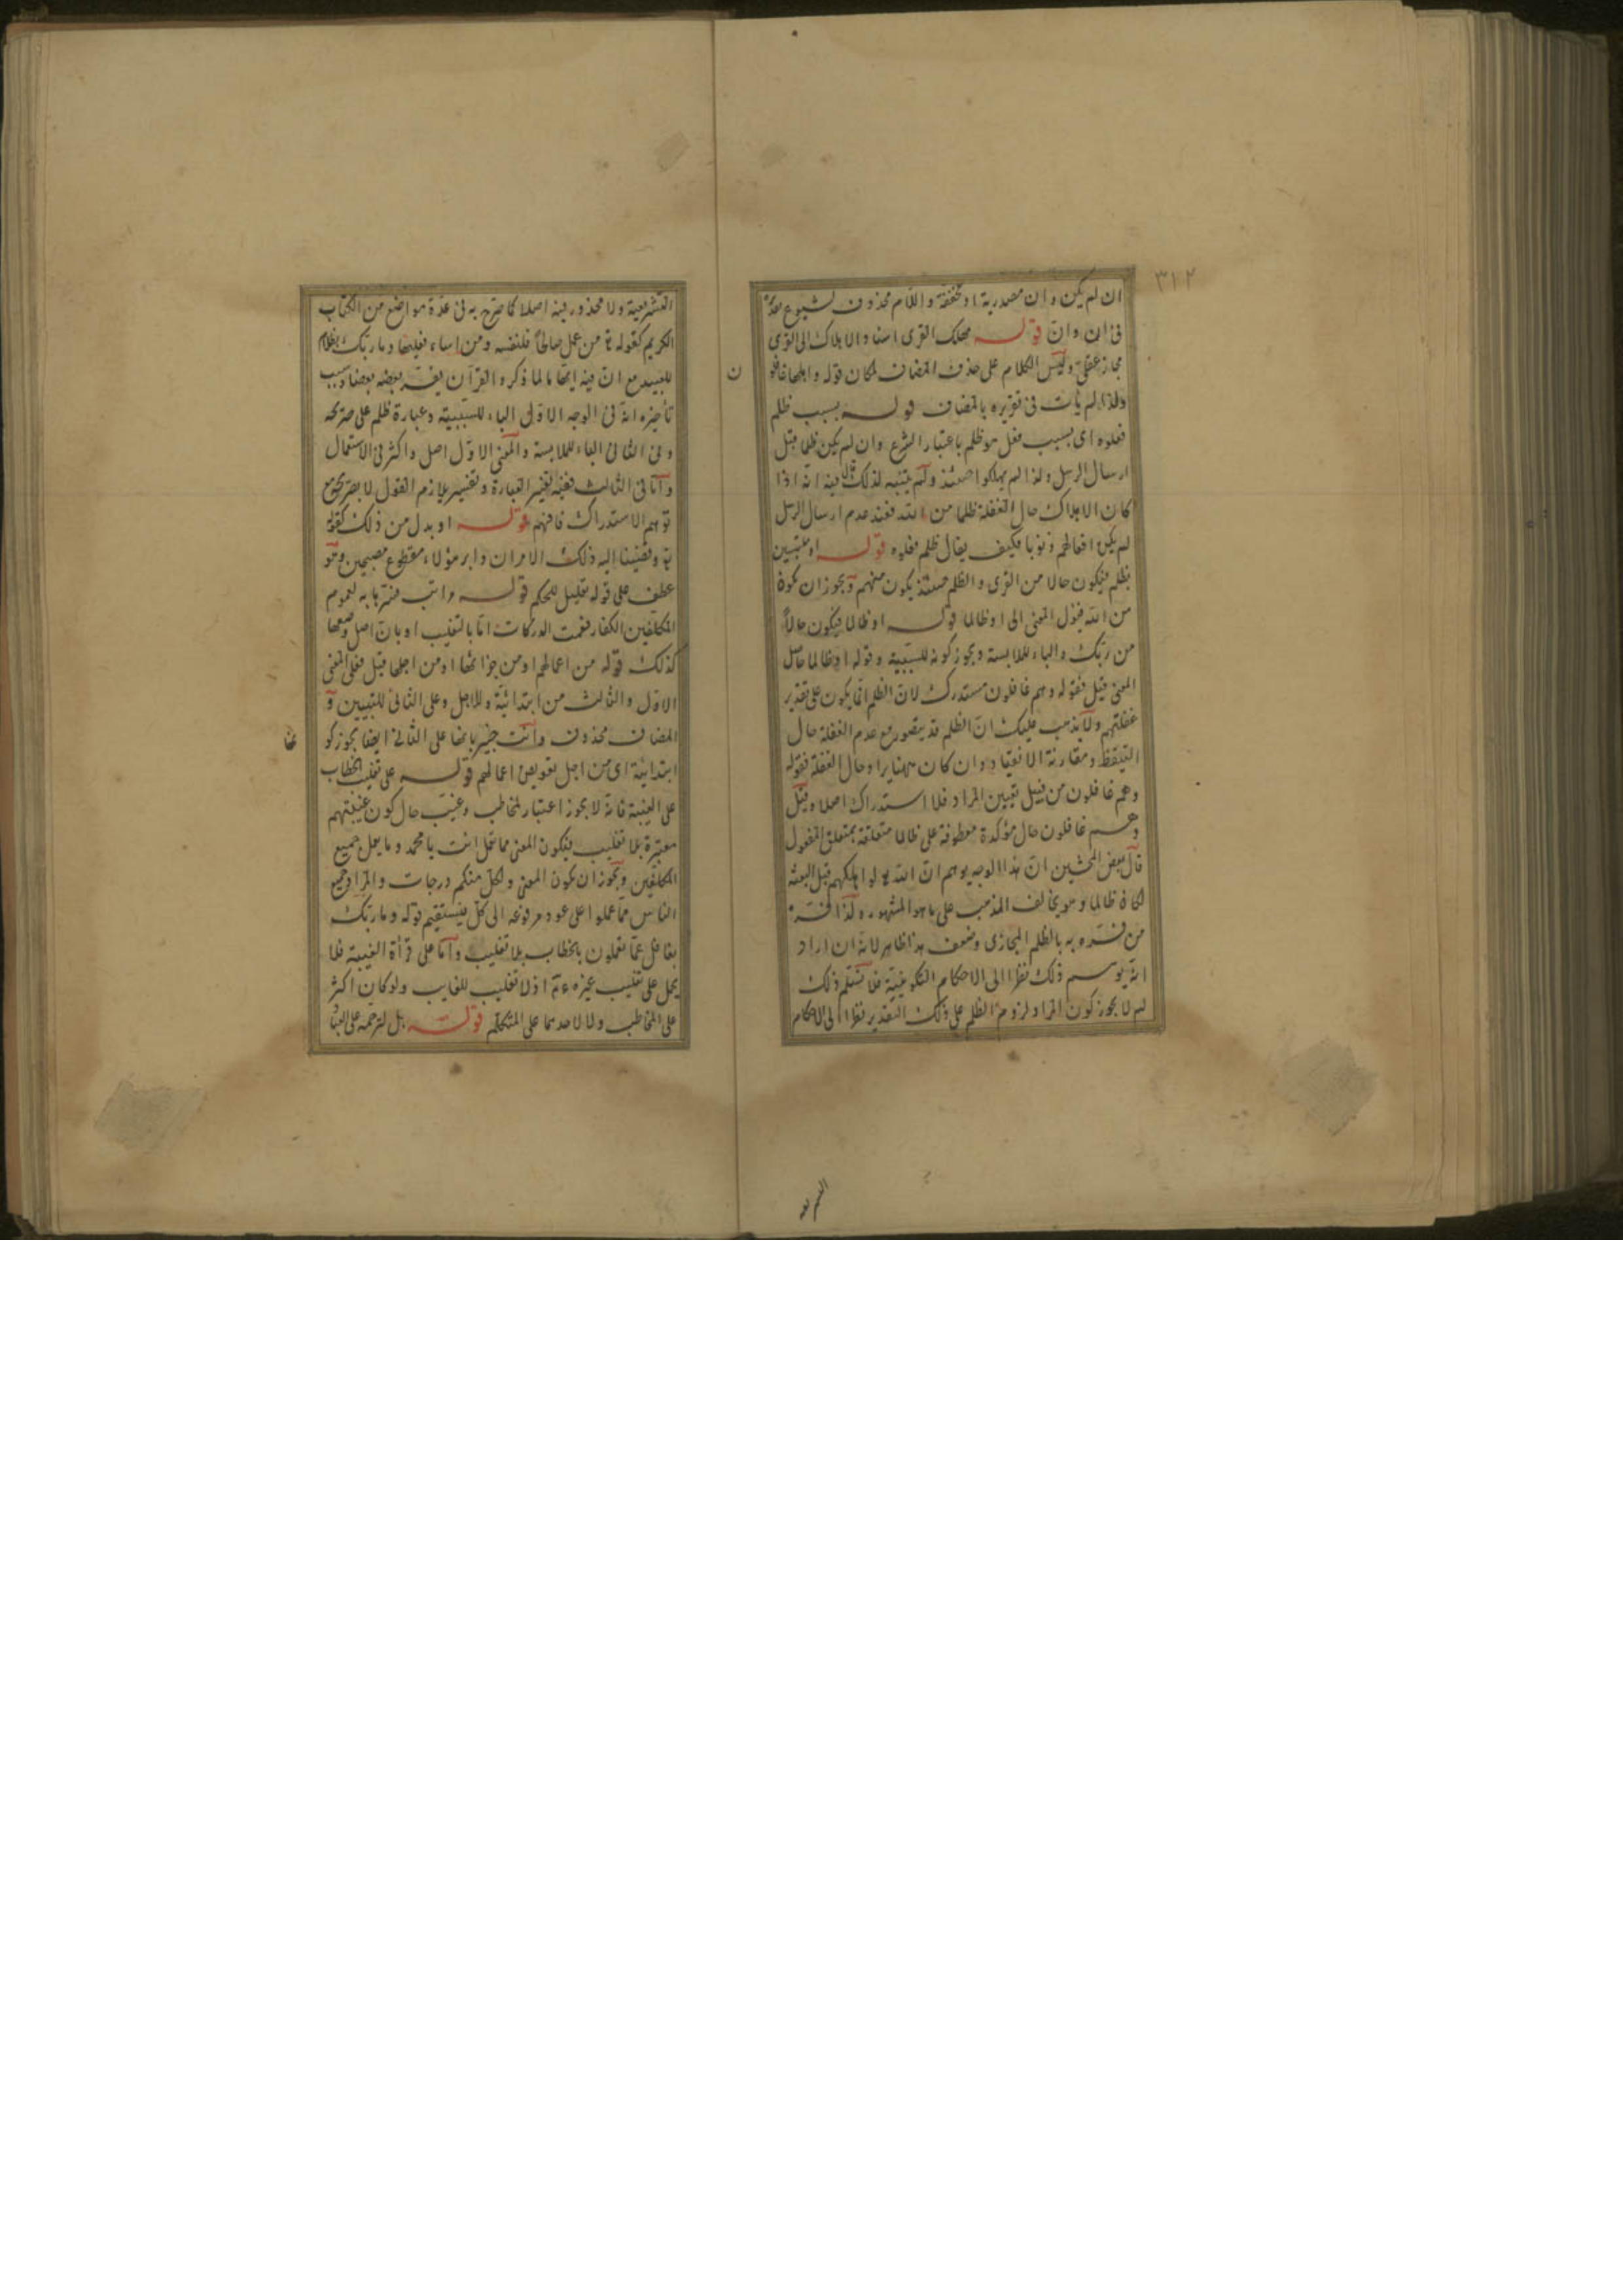 ٣١٢
ان لم يكن وان مصدرية او مخففة واللام محذوف لشيوع حذفه
فى ان وانّ قوله مهلك القرى اسناد الاهلاك الى القرى
مجاز عقلى وليس الكلام على حذف المضاف لمكان قوله واهلها غافلون
ولذا لم يأت فى تقريره بالمضاف قوله بسبب ظلم
فعلوه اى بسبب فعل هو ظلم باعتبار الشرع وان لم يكن ظلما قبل
ارسال الرسل ولذا لم يهلكوا حينئذ ولم يتنبه لذلك قال فيه انه اذا
كان الاهلاك حال الغفلة ظلما من الله فعند عدم ارسال الرسل
لم يكن افعالهم ذنوبا فكيف يقال ظلم فعلوه قوله او ملتبسين
بظلم فيكون حالا من القرى والظلم حينئذ يكون منهم ويجوز ان يكون
من الله فيؤل المعنى الى او ظالما قوله او ظالما فيكون حالا
من ربك والباء للملابسة ويجوز كونه للسببية وقوله او ظالما حاصل
المعنى قيل فقوله وهم غافلون مستدرك لان الظلم انما يكون على تقدير
غفلتهم ولا يذهب عليك ان الظلم قد يتصور مع عدم الغفلة حال
التيقظ ومقارنة الانقياد وان كان مهنا يراد حال الغفلة فقوله
وهم غافلون من قبيل تعيين المراد فلا استدراك اصلا وقيل
وهم غافلون حال مؤكدة معطوفة على ظالما متعلقة بمتعلق المفعول
قال بعض المحشين ان هذا الوجه يوهم ان الله تع لو اهلكهم قبل البعثة
لكان ظالما وهو يخالف المذهب على ما هو المشهور ولذا فسّره
من فسّره به بالظلم المجازى وضعف هذا ظاهر لانه ان اراد
انه يوهم ذلك نظرا الى الاحكام التكوينية فلا نسلم ذلك
لم لا يجوز كون المراد لزوم الظلم على ذلك التقدير نظرا الى الاحكام
التشريعية
التشريعية ولا محذور فيه اصلا كما صرح به فى عدة مواضع من الكتاب
الكريم كقوله تع من عمل صالحا فلنفسه ومن اساء فعليها وما ربك بظلام
للعبيد مع ان فيه ايماء لما ذكر والقرآن يفسر بعضه بعضا وسبب
تأخيره انه فى الوجه الاول الباء للسببية وعبارة ظلم على صريحه
وفى الثانى الباء للملابسة والمعنى الاول اصل واكثر فى الاستعمال
واما فى الثالث ففيه تغيير العبارة وتفسير بلازم القول لا بصريحه مع
توهم الاستدراك فافهم قوله او بدل من ذلك كقوله
تع وقضينا اليه ذلك الامر ان دابر هؤلاء مقطوع مصبحين وهو
عطف على قوله تعليل للحكم قوله مراتب فسرها به لعموم
المكلفين الكفار فعمت الدركات اما بالتغليب او بان اصل وضعها
كذلك قوله من اعمالهم او من جزائها او من اجلها قيل فعلى المعنى
الاول والثالث من ابتدائية وللاجل وعلى الثانى للتبيين و
المضاف محذوف وانت خبير بانها على الثانى ايضا يجوز كونها
ابتدائية اى من اجل تعويض اعمالهم قوله على تغليب الخطاب
على الغيبة فانه لا يجوز اعتبار المخاطب وغيب حال كون غيبتهم
معتبرة بلا تغليب ليكون المعنى مما تعمل انت يا محمد وما يعمل جميع
المكلفين ويجوز ان يكون المعنى ولكل منكم درجات والمراد جميع
الناس مما عملوا على عود مرفوعه الى كل فيستقيم قوله وما ربك
بغافل عما تعملون بالخطاب بلا تغليب واما على قرأة الغيبة فلا
يحمل على تغليب غيره ءم اذ لا تغليب للغايب ولو كان اكثر
على المخاطب ولا لاحدهما على المتكلم قوله بل لترحمه على العباد